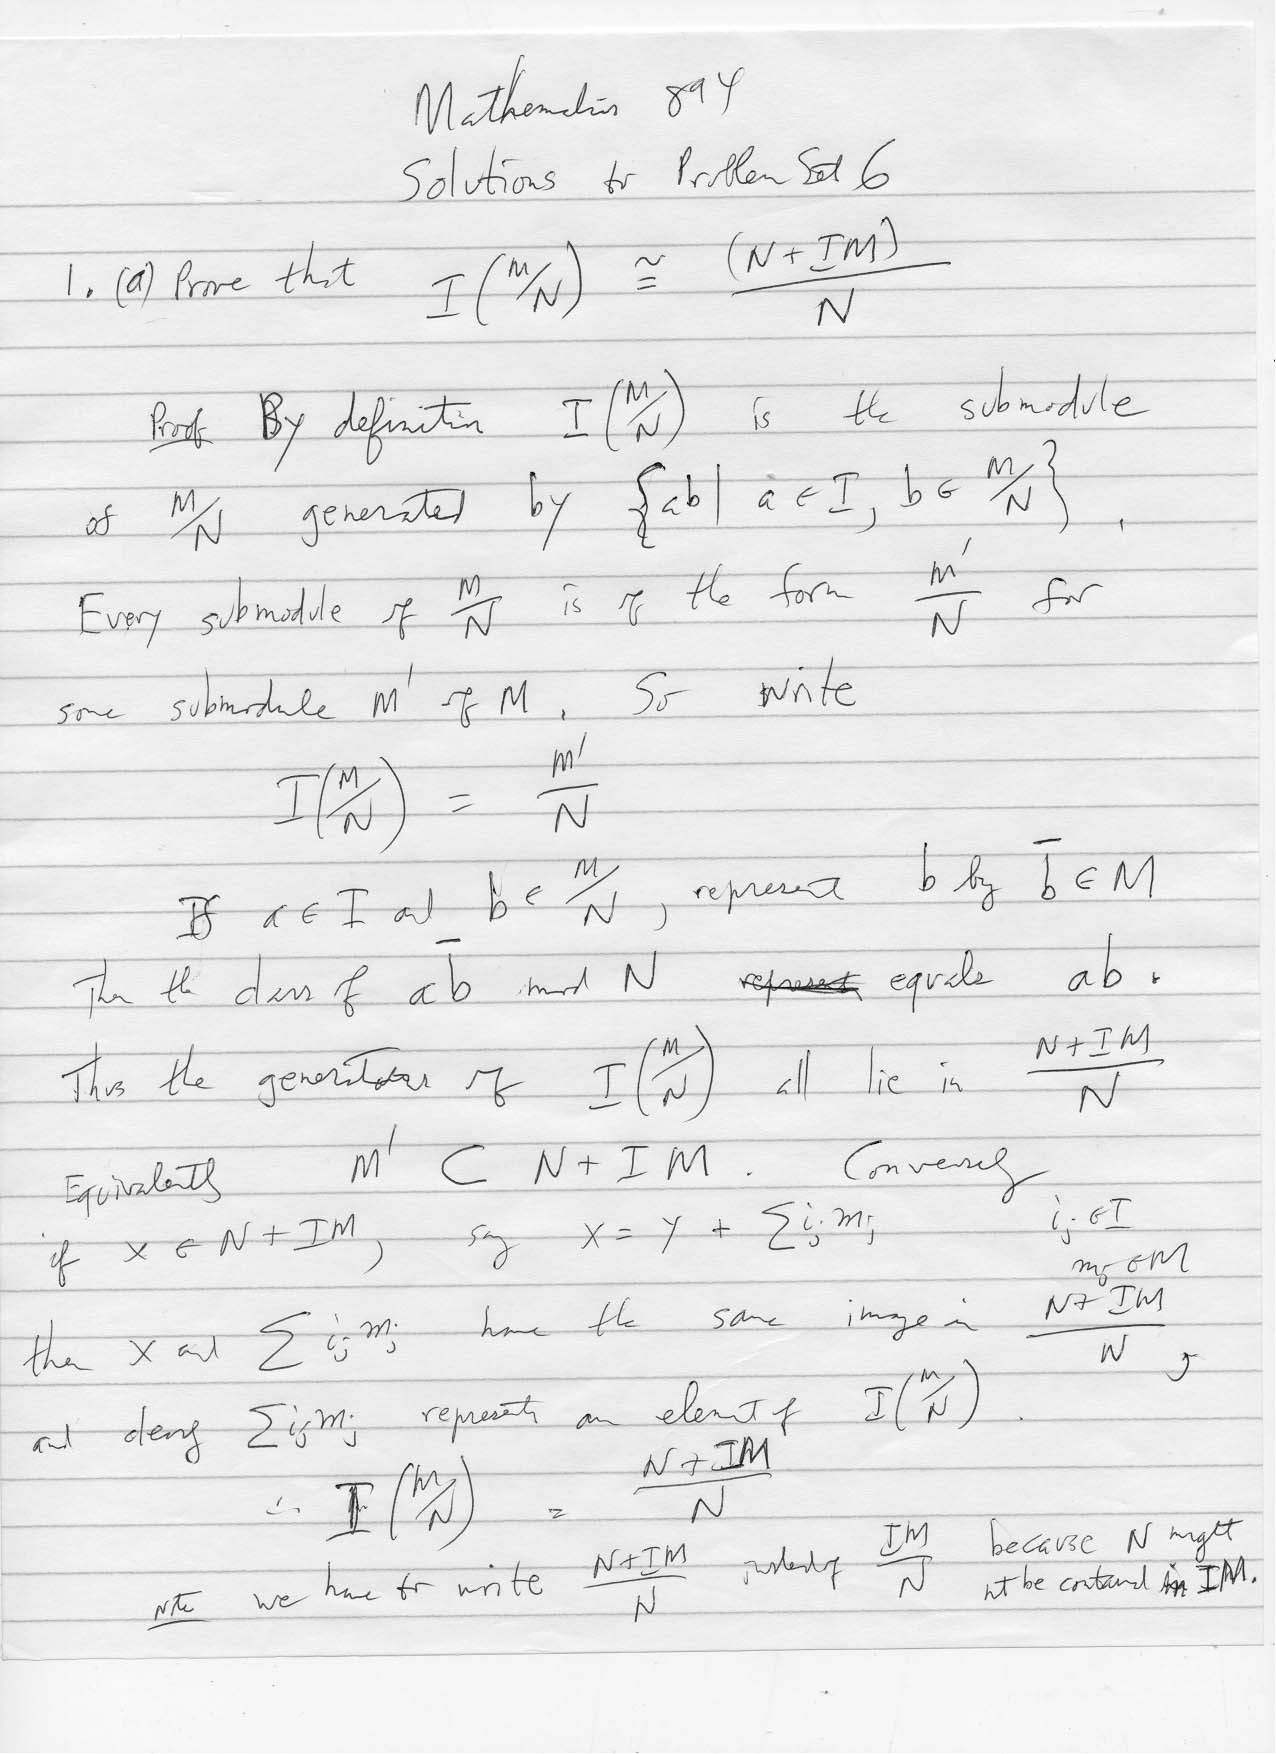 Mathematics 894
Solutions to Problem Set 6
1. (a) Prove that I(M/N) ≅ (N + IM)/N
Proof By definition I(M/N) is the submodule
of M/N generated by {ab | a ∈ I, b ∈ M/N}.
Every submodule of M/N is of the form M'/N for
some submodule M' of M. So write
I(M/N) = M'/N
If a ∈ I and b ∈ M/N, represent b by b̄ ∈ M
Then the class of ab̄ mod N equals ab.
Thus the generators of I(M/N) all lie in (N + IM)/N
Equivalently M' ⊂ N + IM. Conversely
if x ∈ N + IM, say x = y + Σ i_j m_j i_j ∈ I
m_j ∈ M
then x and Σ i_j m_j have the same image in (N + IM)/N,
and Σ i_j m_j represents an element of I(M/N).
∴ I(M/N) = (N + IM)/N
Note we have to write (N + IM)/N instead of IM/N because N might
not be contained in IM.